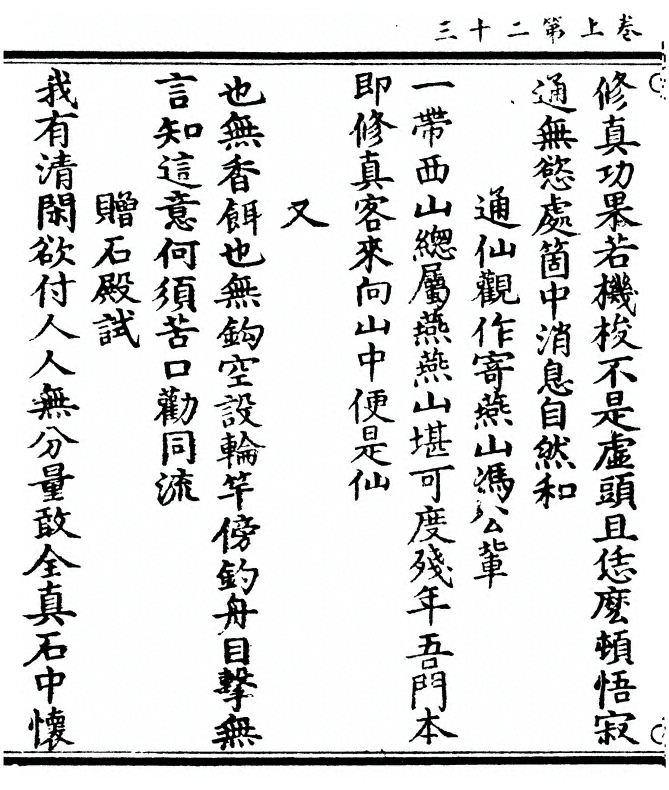 卷上第二十三
修真功果若機梭不是虛頭且恁麼頓悟寂
通無慾處箇中消息自然和
通仙觀作寄燕山馮公輩
一帶西山總屬燕燕山堪可度殘年吾門本
即修真客來向山中便是仙
又
也無香餌也無鈎空設輪竿傍釣舟目擊無
言知這意何須苦口勸同流
贈石殿試
我有清閑欲付人人無分量敢全真石中懷